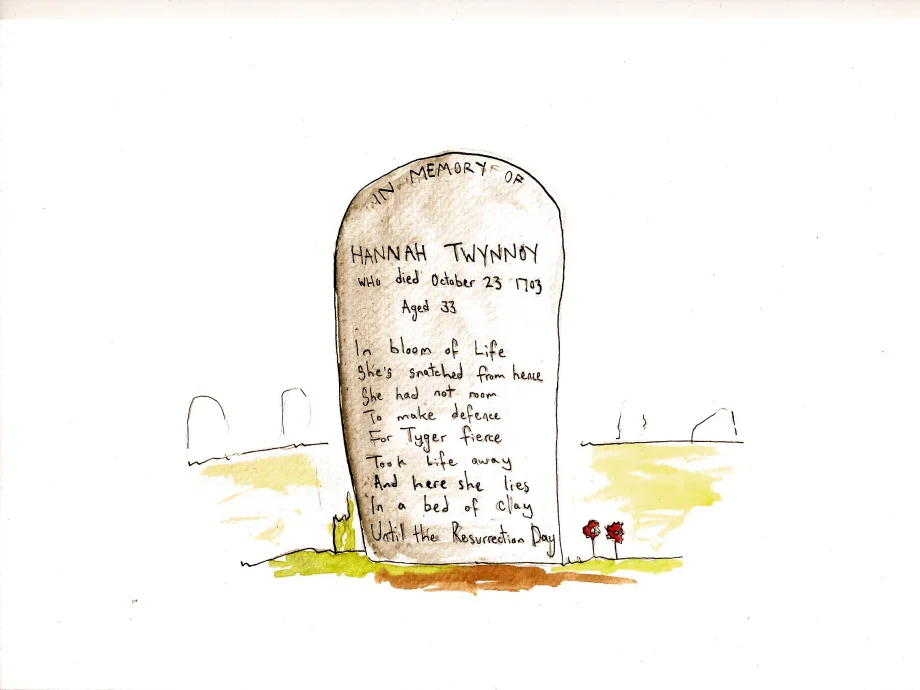 IN MEMORY OF
HANNAH TWYNNOY
WHO died October 23 1703
Aged 33
In bloom of Life
She's snatched from hence
She had not room
To make defence
For Tyger fierce
Took Life away
And here she lies
In a bed of Clay
Until the Resurrection Day